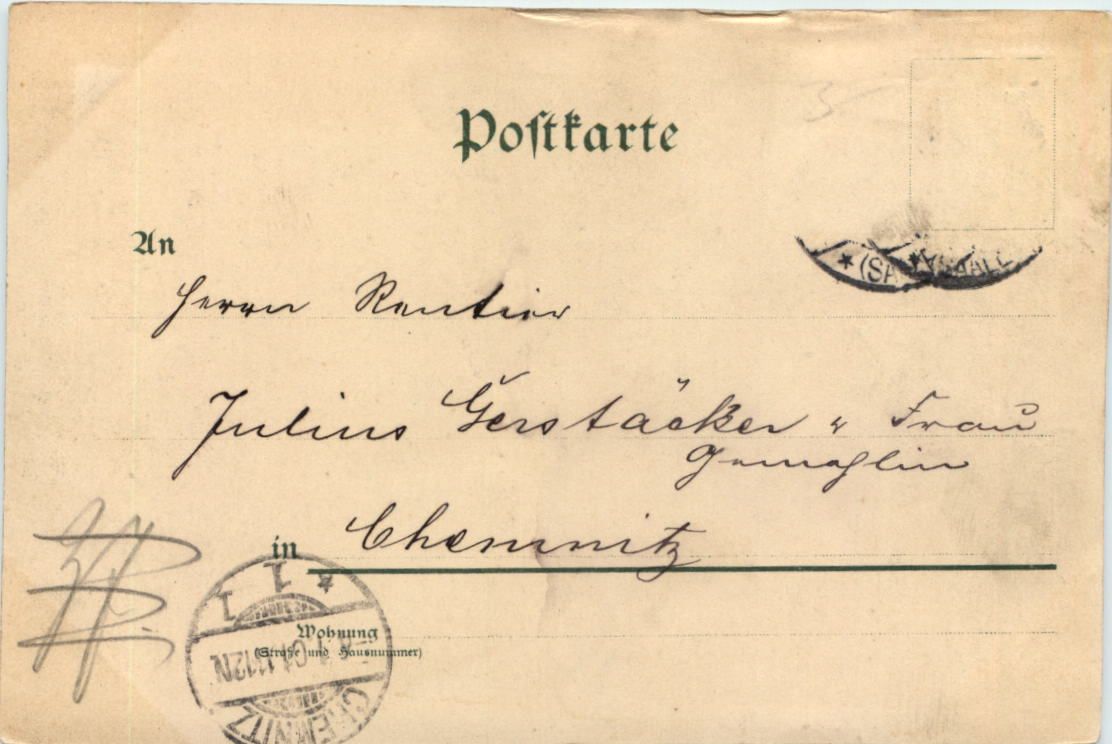 Postkarte
An
Herrn Rentier
Julius Gerstäcker u Frau
Gemahlin
in Chemnitz
Wohnung
(Straße und Hausnummer)
CHEMNITZ
1